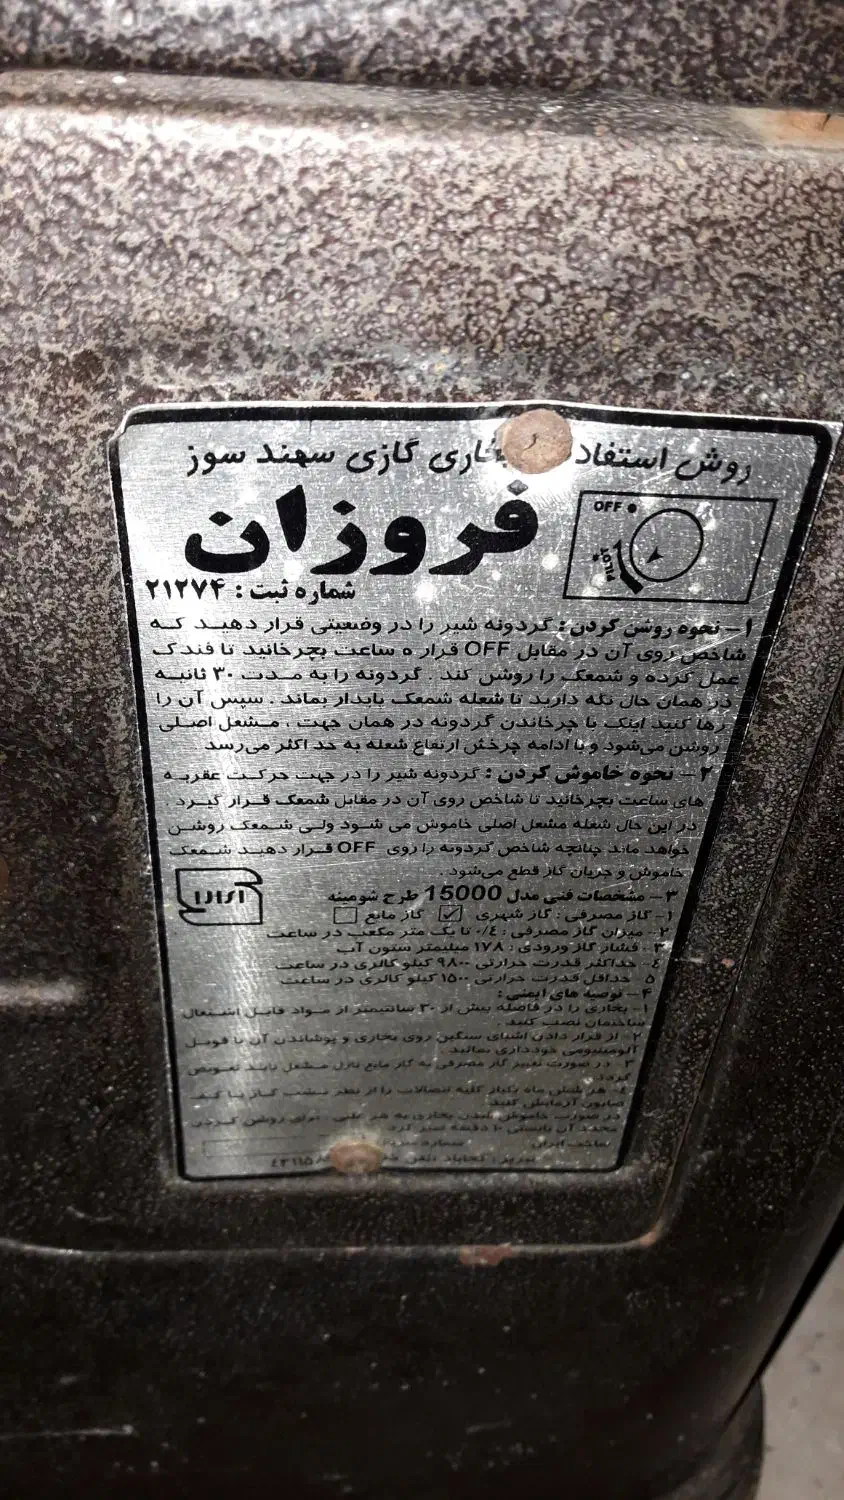 روش استفاده بخاری گازی سهند سوز
OFF
PILOT
فروزان
شماره ثبت : ۲۱۲۷۴
۱- نحوه روشن کردن : گردونه شیر را در وضعیتی قرار دهید که
شاخص روی آن در مقابل OFF قرار ه ساعت بچرخانید تا فندک
عمل کرده و شمعک را روشن کند . گردونه را به مدت ۳۰ ثانیه
در همان حال نگه دارید تا شعله شمعک پایدار بماند . سپس آن را
رها کنید اینک با چرخاندن گردونه در همان جهت ، مشعل اصلی
روشن می‌شود و با ادامه چرخش ارتفاع شعله به حد اکثر می‌رسد
۲- نحوه خاموش کردن : گردونه شیر را در جهت حرکت عقربه
های ساعت بچرخانید تا شاخص روی آن در مقابل شمعک قرار گیرد .
در این حال شعله مشعل اصلی خاموش می شود ولی شمعک روشن
خواهد ماند چنانچه شاخص گردونه را روی OFF قرار دهید شمعک
خاموش و جریان گاز قطع می‌شود .
۳- مشخصات فنی مدل 15000 طرح شومینه
۱- گاز مصرفی : گاز شهری گاز مایع
۲- میزان گاز مصرفی : ۰/٤ تا یک متر مکعب در ساعت
۳- فشار گاز ورودی : ۱۷۸ میلیمتر ستون آب
٤- حداکثر قدرت حرارتی ۹۸۰۰ کیلو کالری در ساعت
۵ حداقل قدرت حرارتی ۱۵۰۰ کیلو کالری در ساعت
۴- توصیه های ایمنی :
۱- بخاری را در فاصله بیش از ۳۰ سانتیمتر از مواد قابل اشتعال
ساختمان نصب کنید .
۲- از قرار دادن اشیای سنگین روی بخاری و پوشاندن آن با فویل
آلومینیومی خودداری نمائید
۳- در صورت تغییر گاز مصرفی به گاز مایع نازل مشعل باید تعویض
گردد
٤- هر شش ماه یکبار کلیه اتصالات را از نظر نشت گاز با کف
صابون آزمایش کنید
در صورت خاموش شدن بخاری به هر علتی ، برای روشن کردن
مجدد آن بایستی ۱۰ دقیقه صبر کرد
ساخت ایران شماره سریال
تبریز :